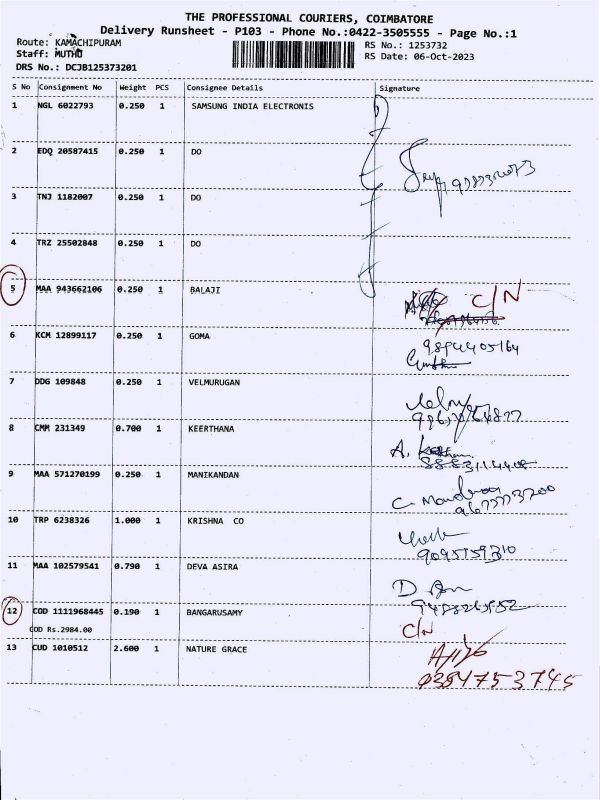 THE PROFESSIONAL COURIERS, COIMBATORE
Delivery Runsheet - P103 - Phone No.:0422-3505555 - Page No.:1
Route: KAMACHIPURAM
Staff: MUTHU
DRS No.: DCJB125373201
RS No.: 1253732
RS Date: 06-Oct-2023
S No Consignment No Weight PCS Consignee Details Signature
1 NGL 6022793 0.250 1 SAMSUNG INDIA ELECTRONIS
2 EDQ 20587415 0.250 1 DO
3 TNJ 1182007 0.250 1 DO
4 TRZ 25502848 0.250 1 DO
5 MAA 943662106 0.250 1 BALAJI C/N
6 KCM 12899117 0.250 1 GOMA 9894405164
7 DDG 109848 0.250 1 VELMURUGAN
8 CMM 231349 0.700 1 KEERTHANA
9 MAA 571270199 0.250 1 MANIKANDAN
10 TRP 6238326 1.000 1 KRISHNA CO
9095759310
11 MAA 102579541 0.790 1 DEVA ASIRA
12 COD 1111968445 0.190 1 BANGARUSAMY
COD Rs.2984.00 C/N
13 CUD 1010512 2.600 1 NATURE GRACE
9384753745